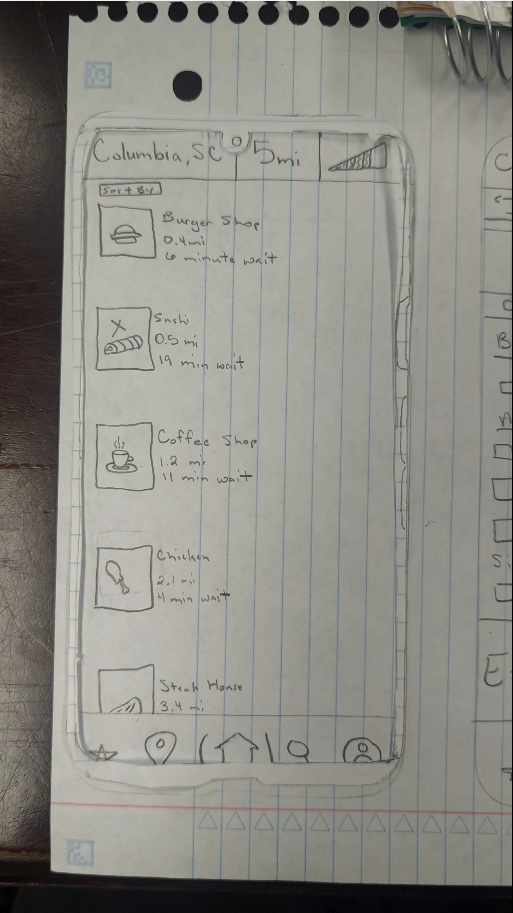 Columbia, SC
5mi
Sort By
Burger Shop
0.4mi
6 minute wait
Sushi
0.5 mi
19 min wait
Coffee Shop
1.2 mi
11 min wait
Chicken
2.1 mi
4 min wait
Steak House
3.4 mi